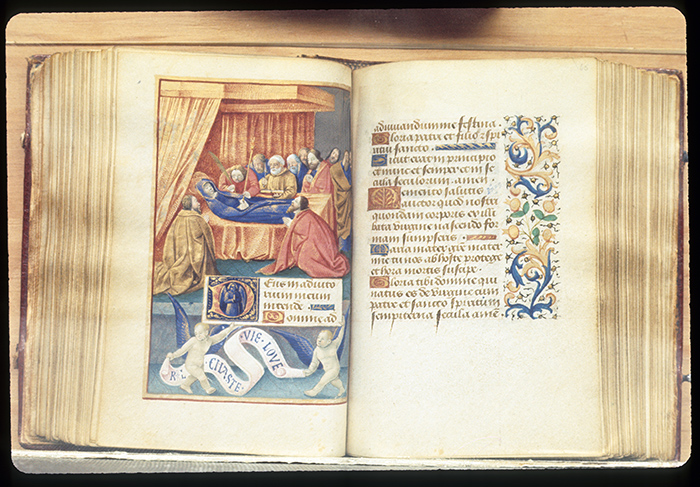 Deus in adiuto
rium meum
intende
Domine ad
VIE LOVE
CHASTE
adiuvandum me festina.
Gloria patri et filio et spi
ritui sancto.
Sicut erat in principio
et nunc et semper et in se
cula seculorum amen.
Memento salutis
auctor quod nostri
quondam corporis ex illi
bata virgine nascendo for
mam sumpseris.
Maria mater gratie mater
tu nos ab hoste protege
et hora mortis suscipe.
Gloria tibi domine qui
natus es de virgine cum
patre et sancto spiritu
sempiterna secula amen